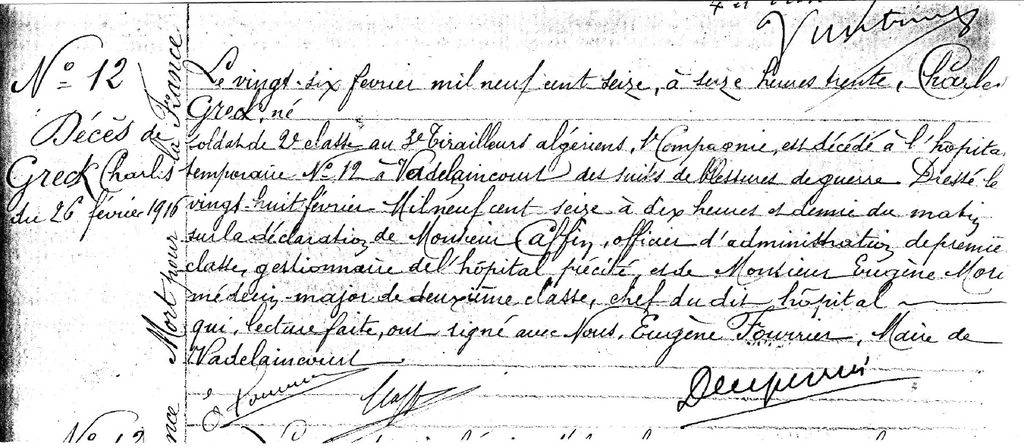 No 12
Décès de
Greck Charles
du 26 février 1916
Mort pour la France
Le vingt-six février mil neuf cent seize, à seize heures trente, Charles
Greck, né
soldat de 2e classe au 3e Tirailleurs algériens, 1e Compagnie, est décédé à l'hôpita
temporaire No 12 à Vadelaincourt des suites de blessures de guerre Dressé le
vingt-huit février Mil neuf cent seize à dix heures et demie du matin
sur la déclaration de Monsieur Caffin, officier d'administration de première
classe, gestionnaire de l'hôpital précité, et de Monsieur Eugène Mor
médecin-major de deuxième classe, chef du dit hôpital
qui, lecture faite, ont signé avec Nous, Eugène Fourrier, Maire de
Vadelaincourt
No 13
nce